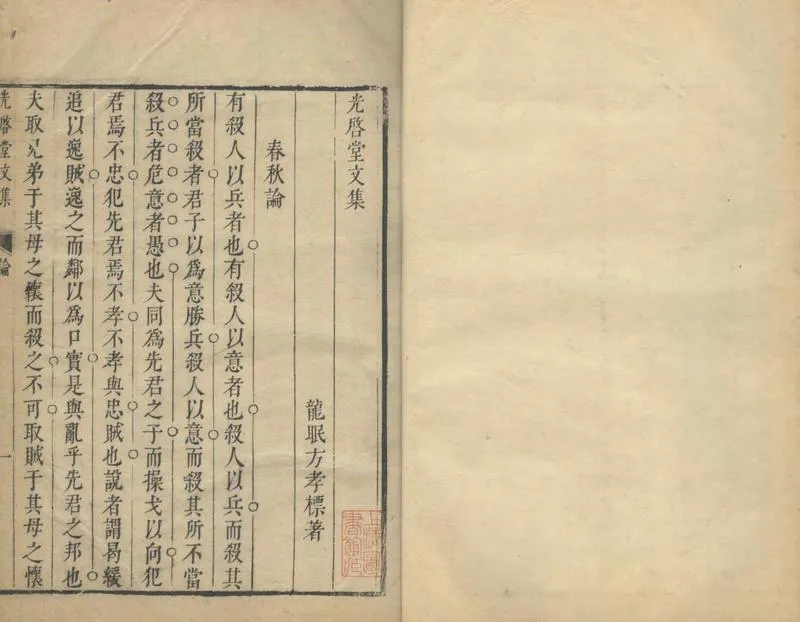 光啓堂文集
龍眠方孝標著
春秋論
有殺人以兵者也有殺人以意者也殺人以兵而殺其
所當殺者君子以爲意勝兵殺人以意而殺其所不當
殺兵者危意者愚也夫同爲先君之子而操戈以向犯
君焉不忠犯先君焉不孝不孝與忠賊也說者謂曷緩
追以逸賊逸之而鄰以爲口實是與亂乎先君之邦也
夫取兄弟于其母之懷而殺之不可取賊于其母之懷
光啓堂文集
論
一
上海圖
書館